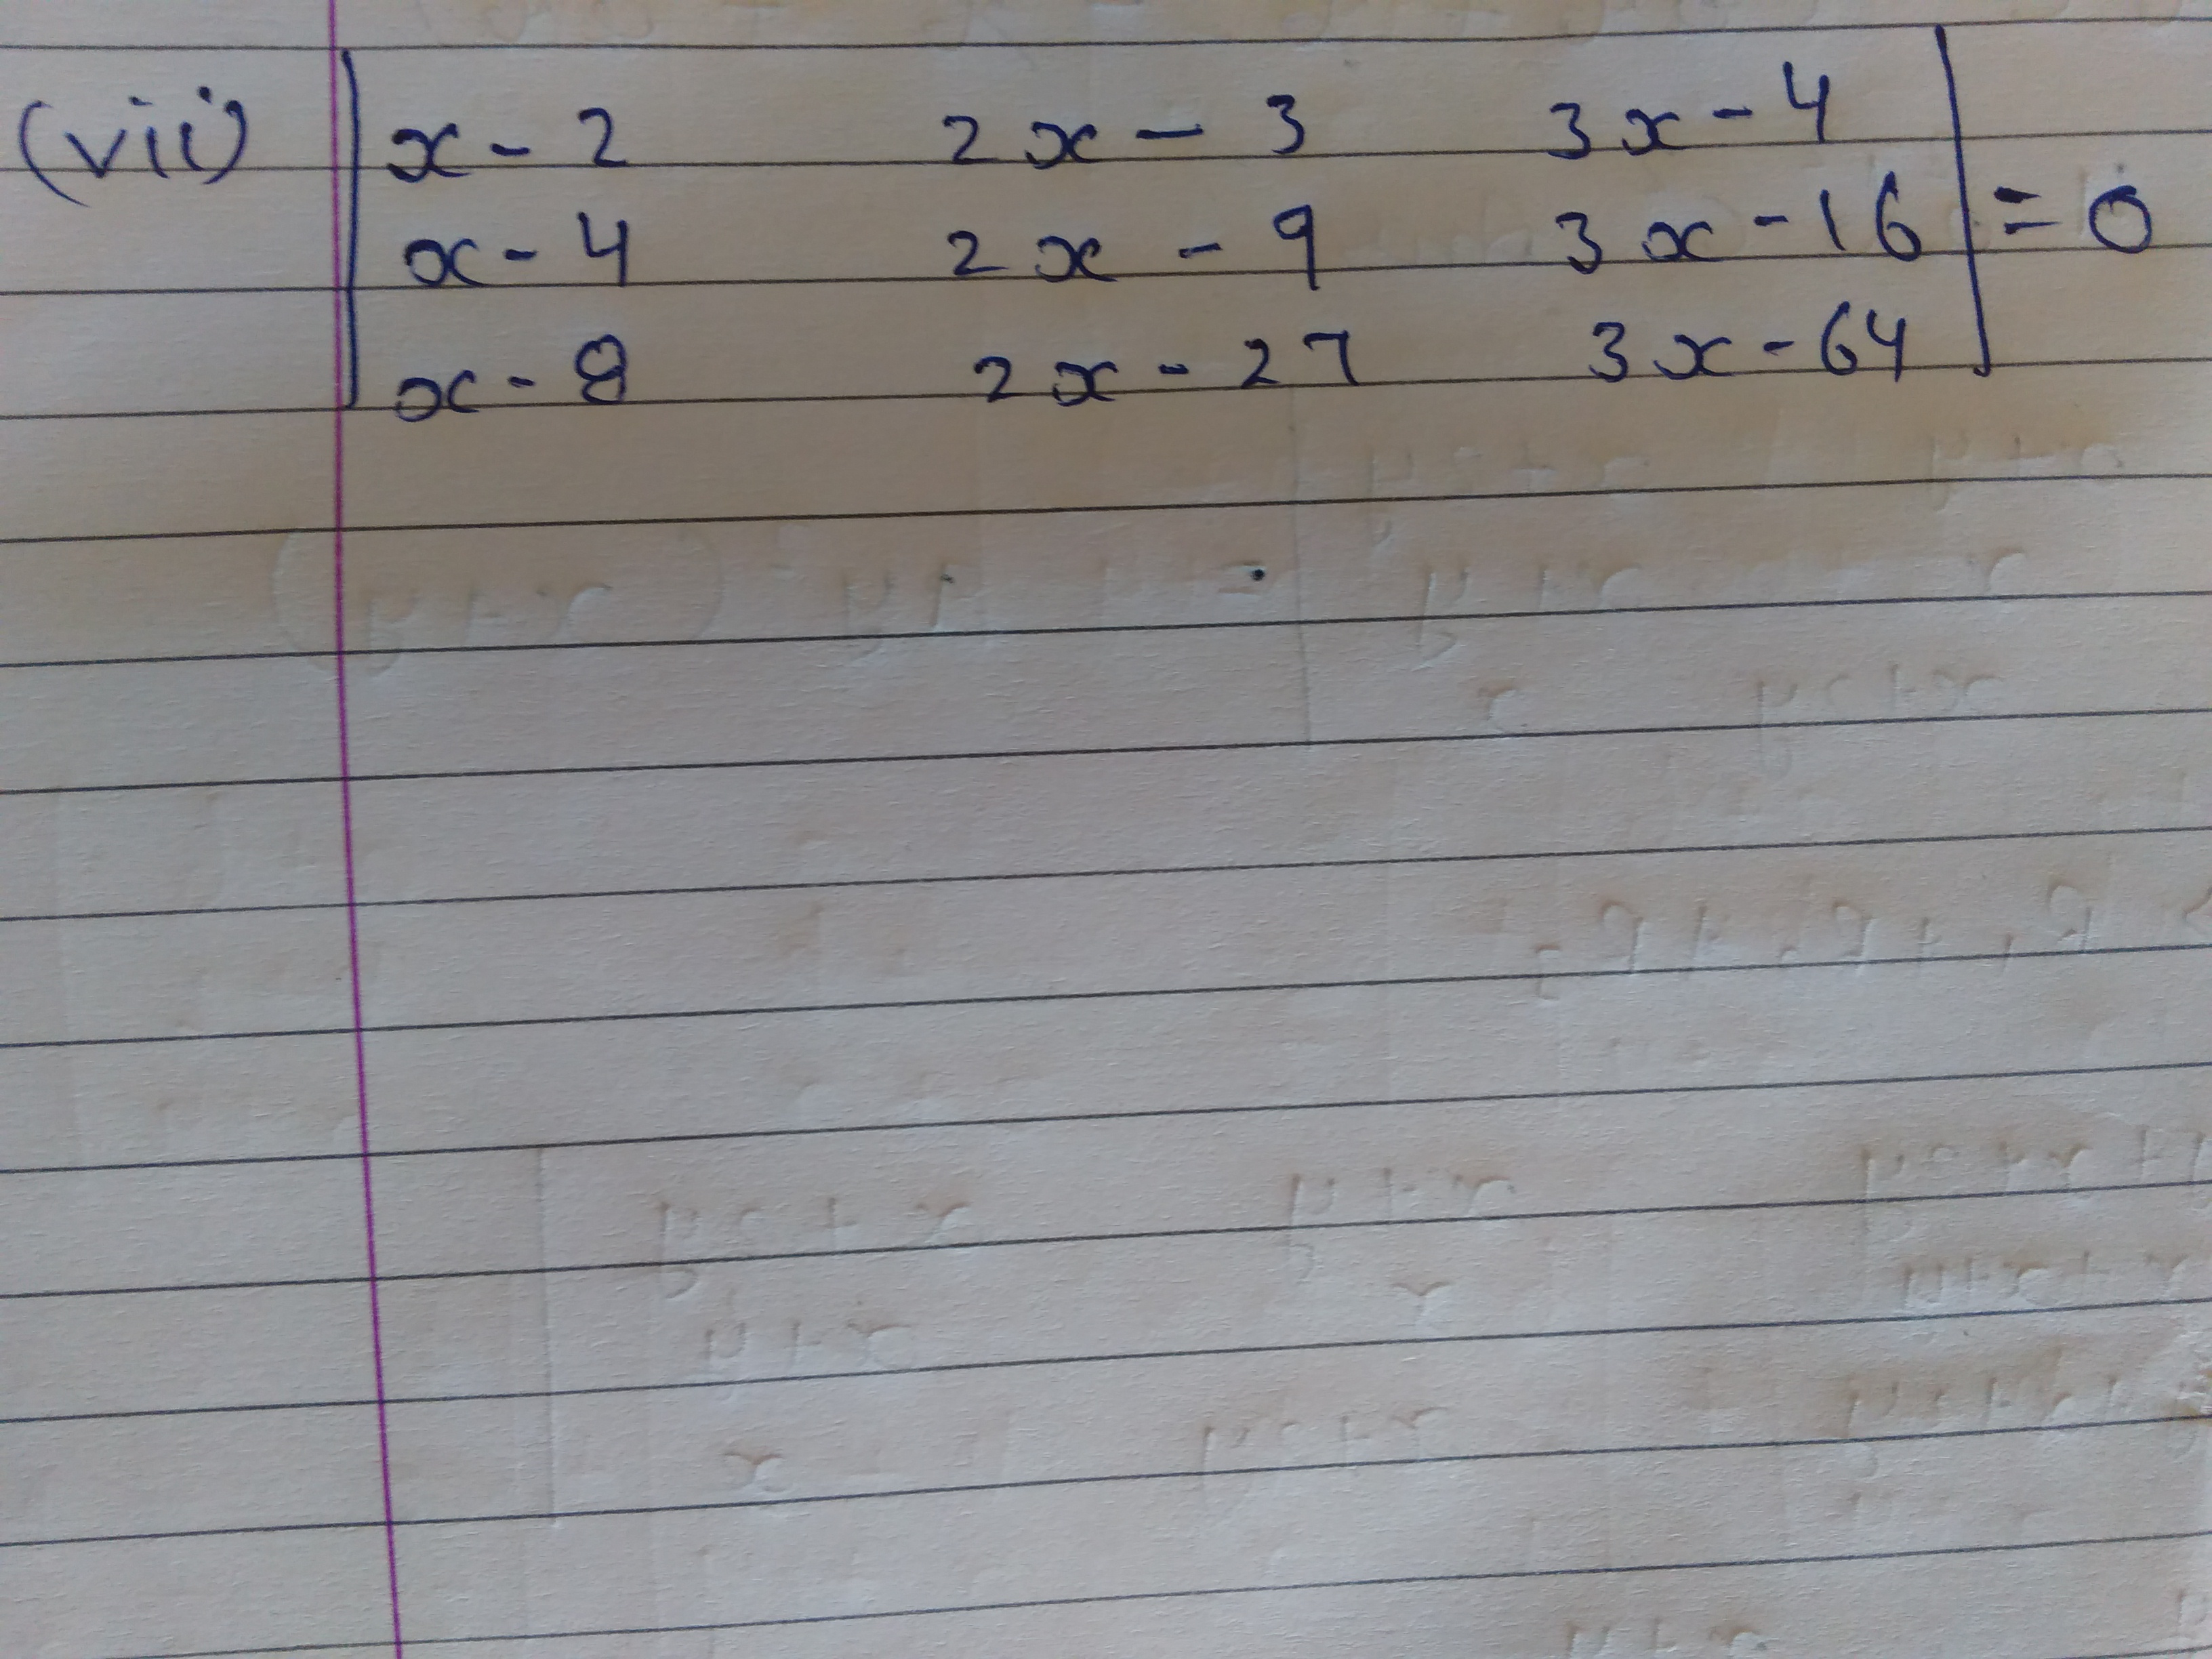 (vii) | x - 2 2x - 3 3x - 4 |
| x - 4 2x - 9 3x - 16 | = 0
| x - 8 2x - 27 3x - 64 |